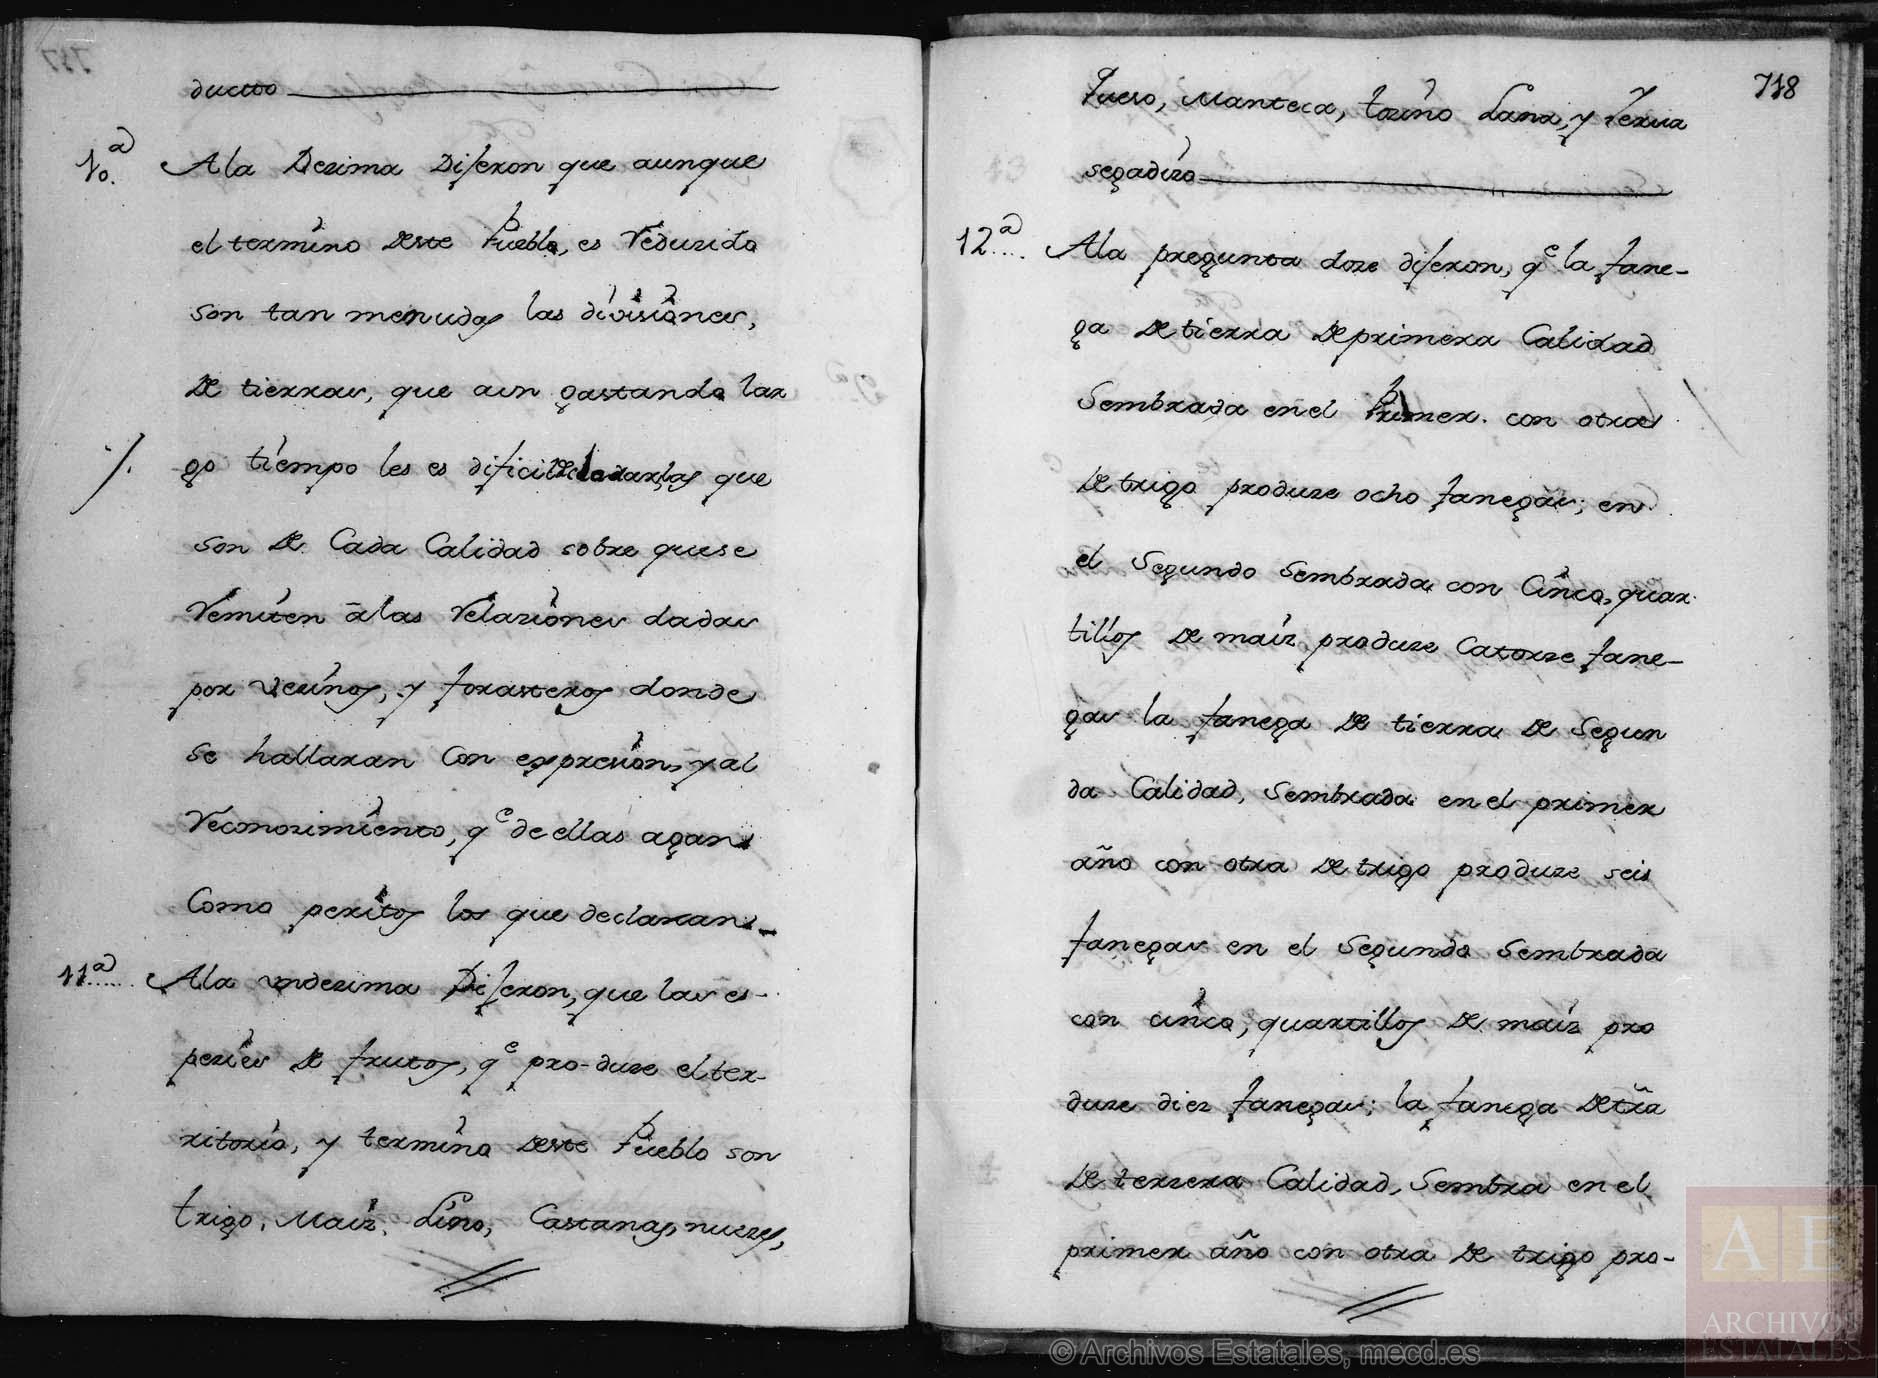 ducto
10.ª Ala Dezima Dijeron que aunque
el termino deste Pueblo, es Reduzido
son tan menudas las divisiones,
de tierras, que aun gastando lar
go tiempo les es dificil declararlas que
son de Cada Calidad sobre quese
Remiten alas Relaziones dadas
por vezinos, y forasteros donde
se hallaran Con expresion, y al
Reconozimiento, qᵉ de ellas agan
Como peritos los que declaran
11ª Ala undezima Dijeron, que las es-
pezies de frutos, qᵉ pro-duze el ter-
ritorio, y termino deste Pueblo son
trigo, Maiz, Lino, Castanas, nuezes,
718
Queso, Manteca, tozino Lana, y Yerva
segadizo
12ª Ala pregunta doze dijeron, qᵉ la fane-
ga de tierra de primera Calidad
Sembrada en el Primer. con otra
de trigo produze ocho fanegas; en
el Segundo Sembrada con Cinco, quar
tillos de maiz produze Catorze fane-
gas la fanega de tierra de Segun
da Calidad, Sembrada en el primer
año con otra de trigo produze seis
fanegas en el Segundo Sembrada
con cinco, quartillos de maiz pro
duze diez fanegas; la fanega de trã
de terzera Calidad, Sembra en el
primer año con otra de trigo pro-
AE
ARCHIVOS
ESTATALES
© Archivos Estatales, mecd.es